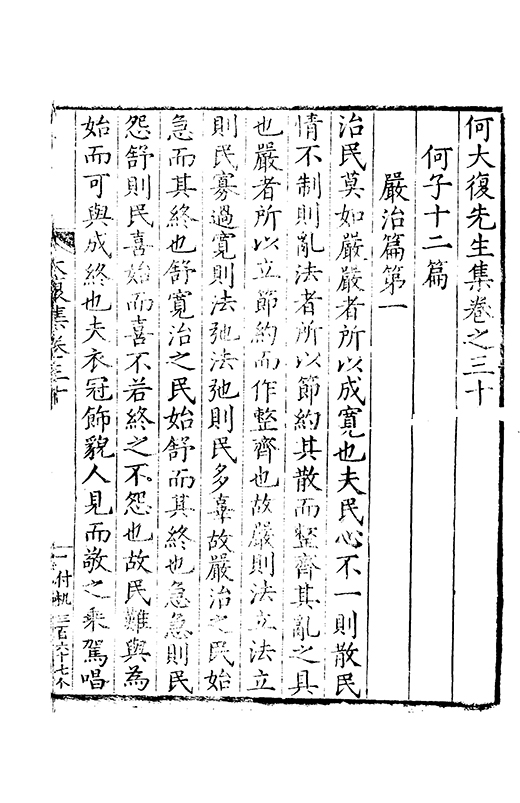 何大復先生集卷之三十
何子十二篇
嚴治篇第一
治民莫如嚴嚴者所以成寛也夫民心不一則散民
情不制則亂法者所以節約其散而整齊其亂之具
也嚴者所以立節約而作整齊也故嚴則法立法立
則民寡過寛則法弛法弛則民多辜故嚴治之民始
急而其終也舒寛治之民始舒而其終也急急則民
怨舒則民喜始而喜不若終之不怨也故民難與為
始而可與成終也夫衣冠飾貌人見而敬之乘駕唱
大復集卷三十
一
付机
三百六十七个